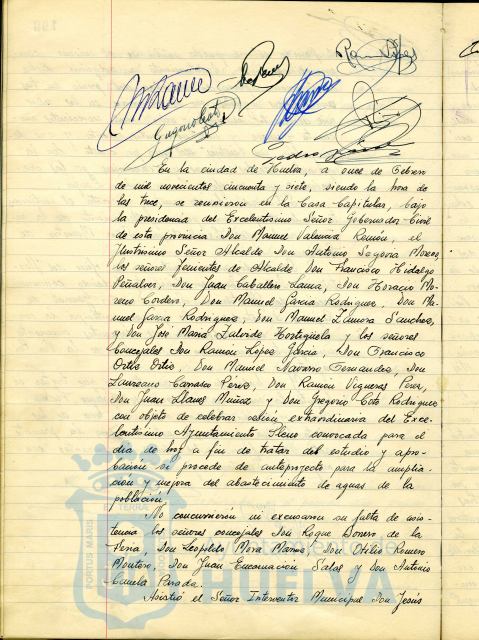 En la ciudad de Huelva, a once de Febrero
de mil novecientos cincuenta y siete, siendo la hora de
las trece, se reunieron en la Casa Capitular, bajo
la presidencia del Excelentísimo Señor Gobernador Civil
de esta provincia Don Manuel Valencia Remón, el
Ilustrísimo Señor Alcalde Don Antonio Segovia Moreno,
los señores Tenientes de Alcalde, Don Francisco Hidalgo
Peñalver, Don Juan Caballero Lama, Don Horacio Mo-
reno Cordero, Don Manuel García Rodríguez, Don Ma-
nuel García Rodríguez, Don Manuel Zamora Sánchez,
y Don José María Zalvide Hortigüela y los señores
Concejales Don Ramón López García, Don Francisco
Ortiz Ortiz, Don Manuel Navarro Fernández, Don
Laureano Carrasco Pérez, Don Ramón Vigueras Pérez,
Don Juan Llanes Muñoz y Don Gregorio Coto Rodríguez
con objeto de celebrar sesión extraordinaria del Exce-
lentísimo Ayuntamiento Pleno convocada para el
día de hoy a fin de tratar del estudio y apro-
bación si procede de anteproyecto para la amplia-
ción y mejora del abastecimiento de aguas de la
población.
No concurrieron ni excusaron su falta de asis-
tencia los señores concejales Don Roque Donero de la
Peña, Don Leopoldo Mora Marina, Don Otilio Romero
Montoro, Don Juan Encarnación Salas y Don Antonio
Parada.
Asistió el Señor Interventor Municipal Don Jesús
PORTUS MARIS
TERRA
HUELVA